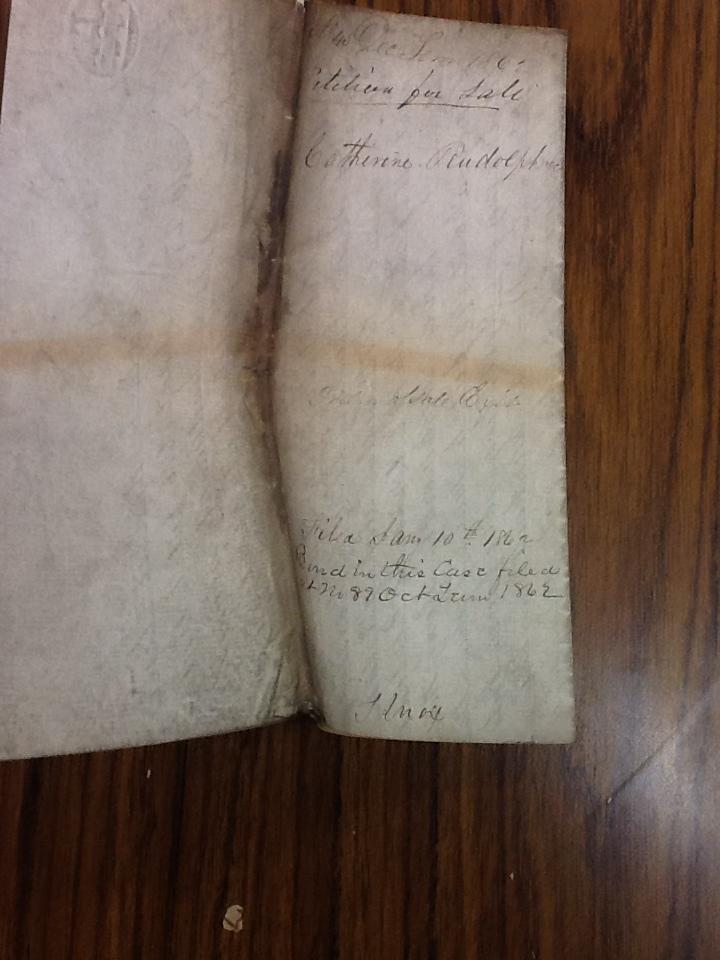 Dec Term 186
Petition for Sale
Catherine Rudolph
Order of Sale
Filed Jany 10th 1862
Bond in this Case filed
at No 89 Oct Term 1862
Knox